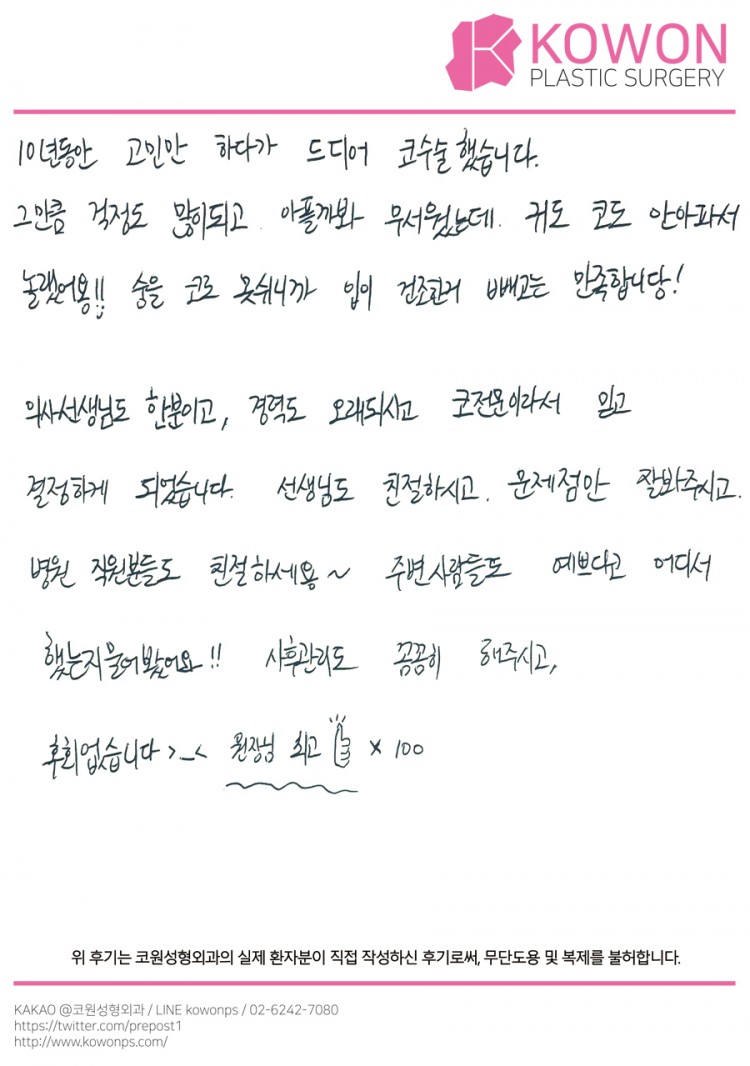 KOWON
PLASTIC SURGERY
10년동안 고민만 하다가 드디어 코수술 했습니다.
그만큼 걱정도 많이되고. 아플까봐 무서웠는데. 귀도 코도 안아파서
놀랬어용!! 숨을 코로 못쉬니까 입이 건조한거 빼고는 만족합니당!
의사선생님도 한분이고, 경력도 오래되시고 코전문이라서 믿고
결정하게 되었습니다. 선생님도 친절하시고. 문제점만 잘봐주시고.
병원 직원분들도 친절하세용~ 주변사람들도 예쁘다고 어디서
했는지물어봤어요!! 사후관리도 꼼꼼히 해주시고,
후회없습니다 >_< 원장님 최고 x 100
위 후기는 코원성형외과의 실제 환자분이 직접 작성하신 후기로써, 무단도용 및 복제를 불허합니다.
KAKAO @코원성형외과 / LINE kowonps / 02-6242-7080
https://twitter.com/prepost1
http://www.kowonps.com/